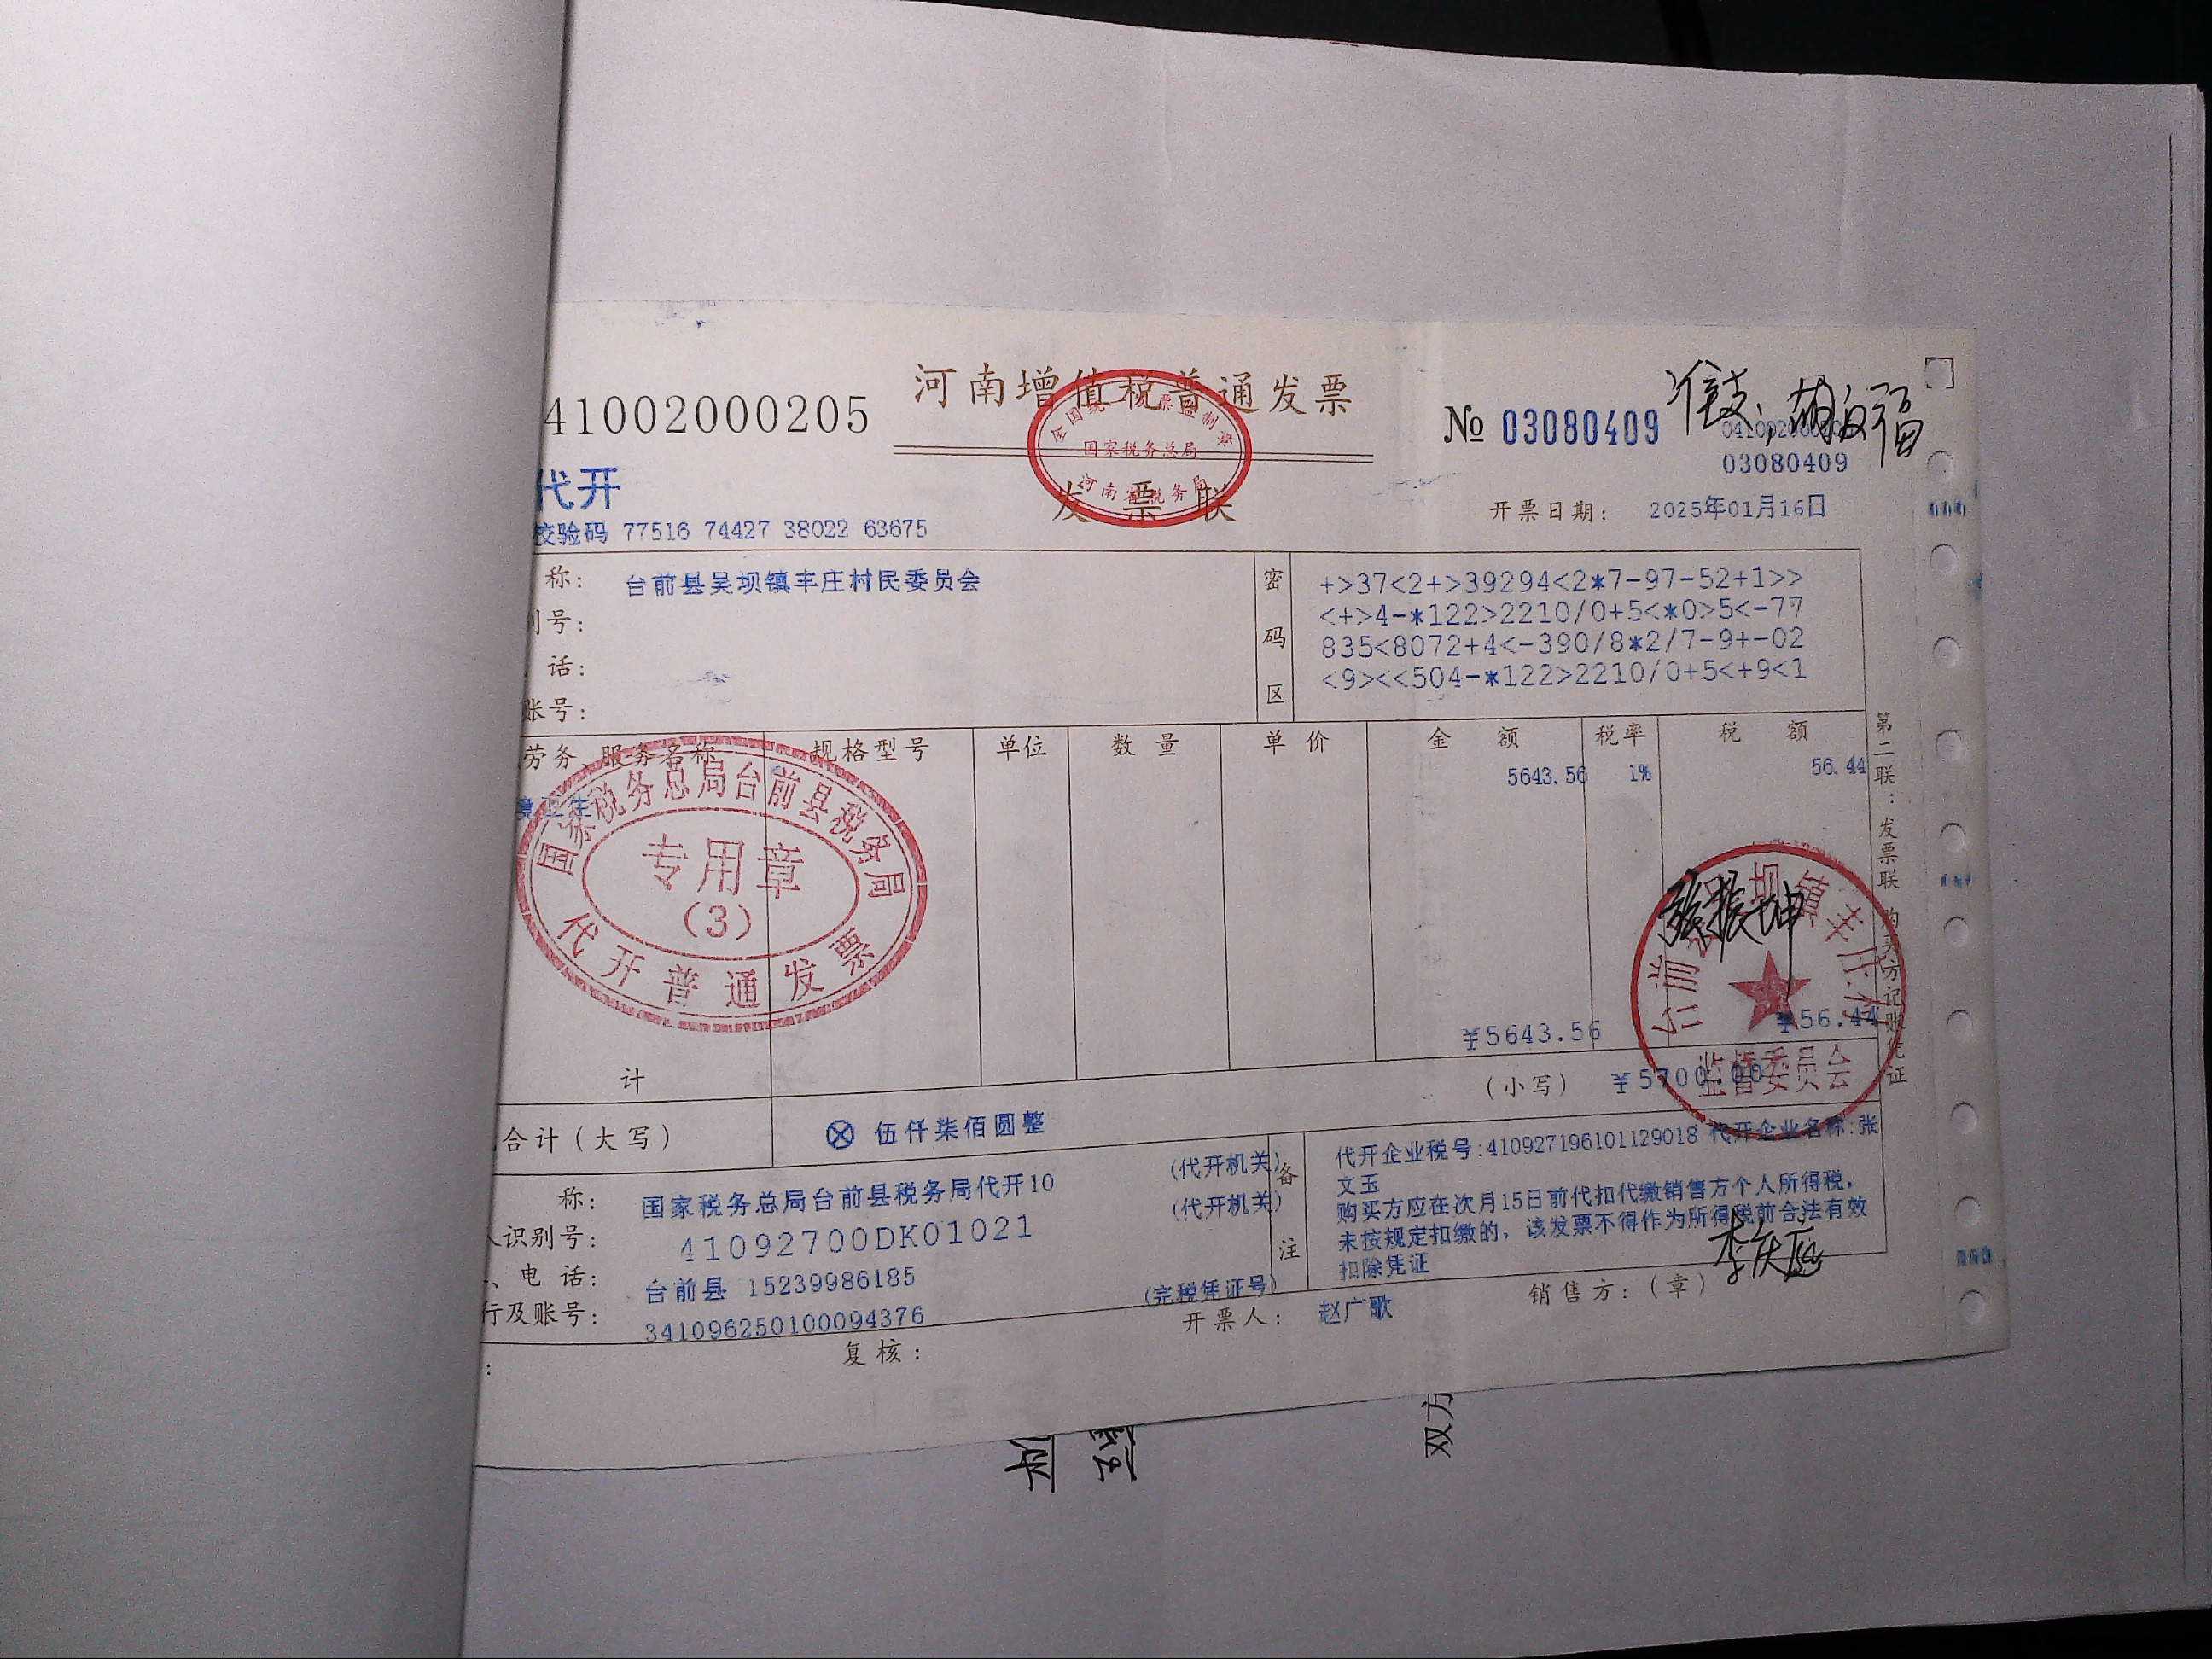 河南增值税普通发票
41002000205
№ 03080409
准支,
03080409
全国统一发票监制章
国家税务总局
河南省税务局
发票联
代开
校验码 77516 74427 38022 63675
开票日期: 2025年01月16日
称: 台前县吴坝镇丰庄村民委员会
别号:
话:
账号:
密码区
+>37<2+>39294<2*7-97-52+1>>
<+>4-*122>2210/0+5<*0>5<-77
835<8072+4<-390/8*2/7-9+-02
<9><<504-*122>2210/0+5<+9<1
劳务、服务名称 规格型号 单位 数量 单价 金额 税率 税额
5643.56 1% 56.44
境卫生
国家税务总局台前县税务局
专用章
(3)
代开普通发票
张振坤
监督委员会
¥5643.56 ¥56.44
计
合计(大写) ⊗ 伍仟柒佰圆整 (小写) ¥5700.00
第二联:发票联 购买方记账凭证
称: 国家税务总局台前县税务局代开10 (代开机关)
人识别号: 41092700DK01021 (代开机关)
、电话: 台前县 15239986185
行及账号: 341096250100094376 (完税凭证号)
备注
代开企业税号:410927196101129018 代开企业名称:张
文玉
购买方应在次月15日前代扣代缴销售方个人所得税,
未按规定扣缴的, 该发票不得作为所得税前合法有效
扣除凭证
:
复核:
开票人: 赵广歌
销售方:(章)
双方